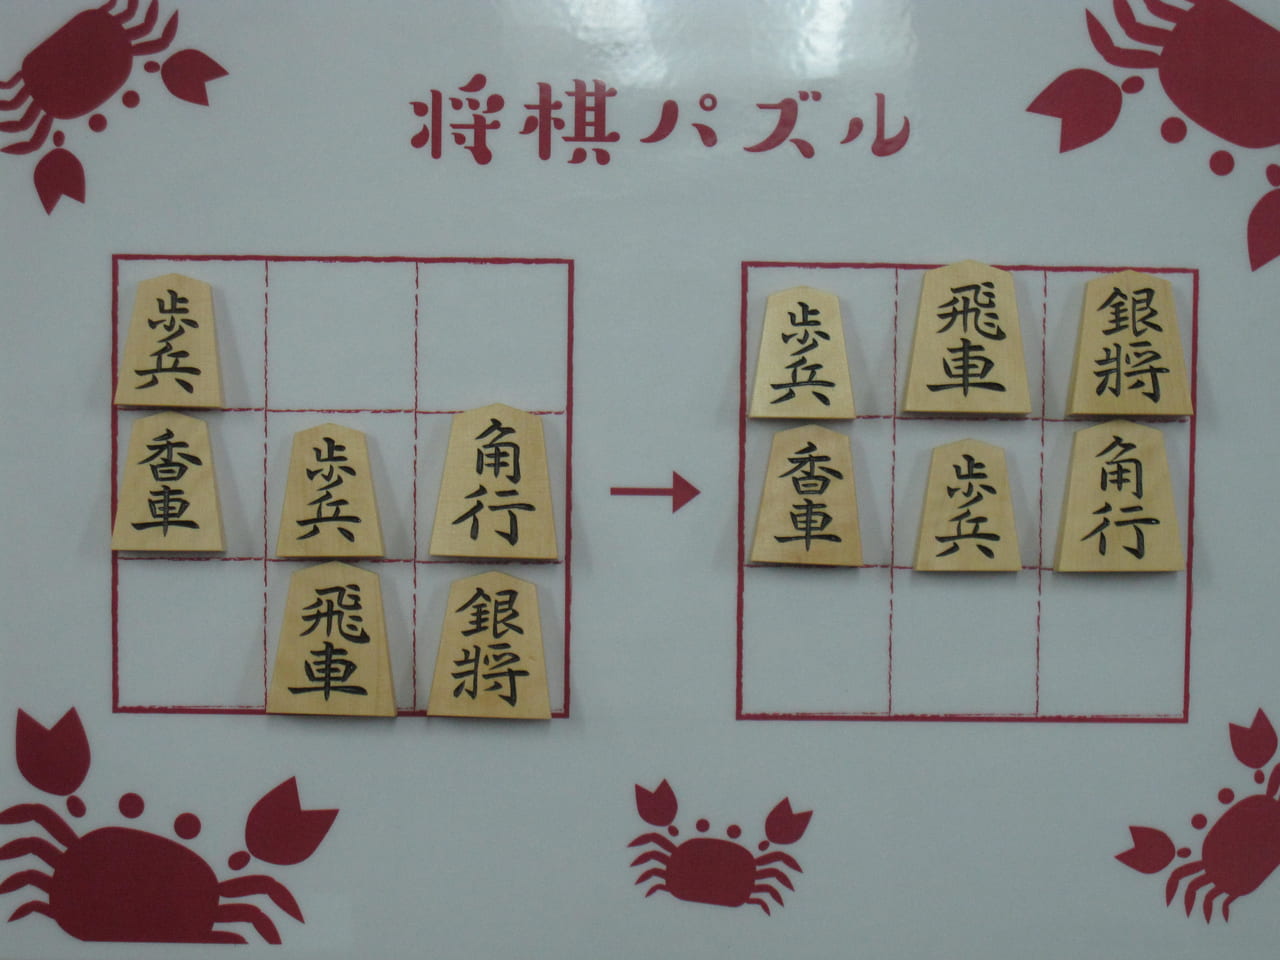 将棋パズル
歩兵
香車
歩兵
角行
飛車
銀将
歩兵
飛車
銀将
香車
歩兵
角行